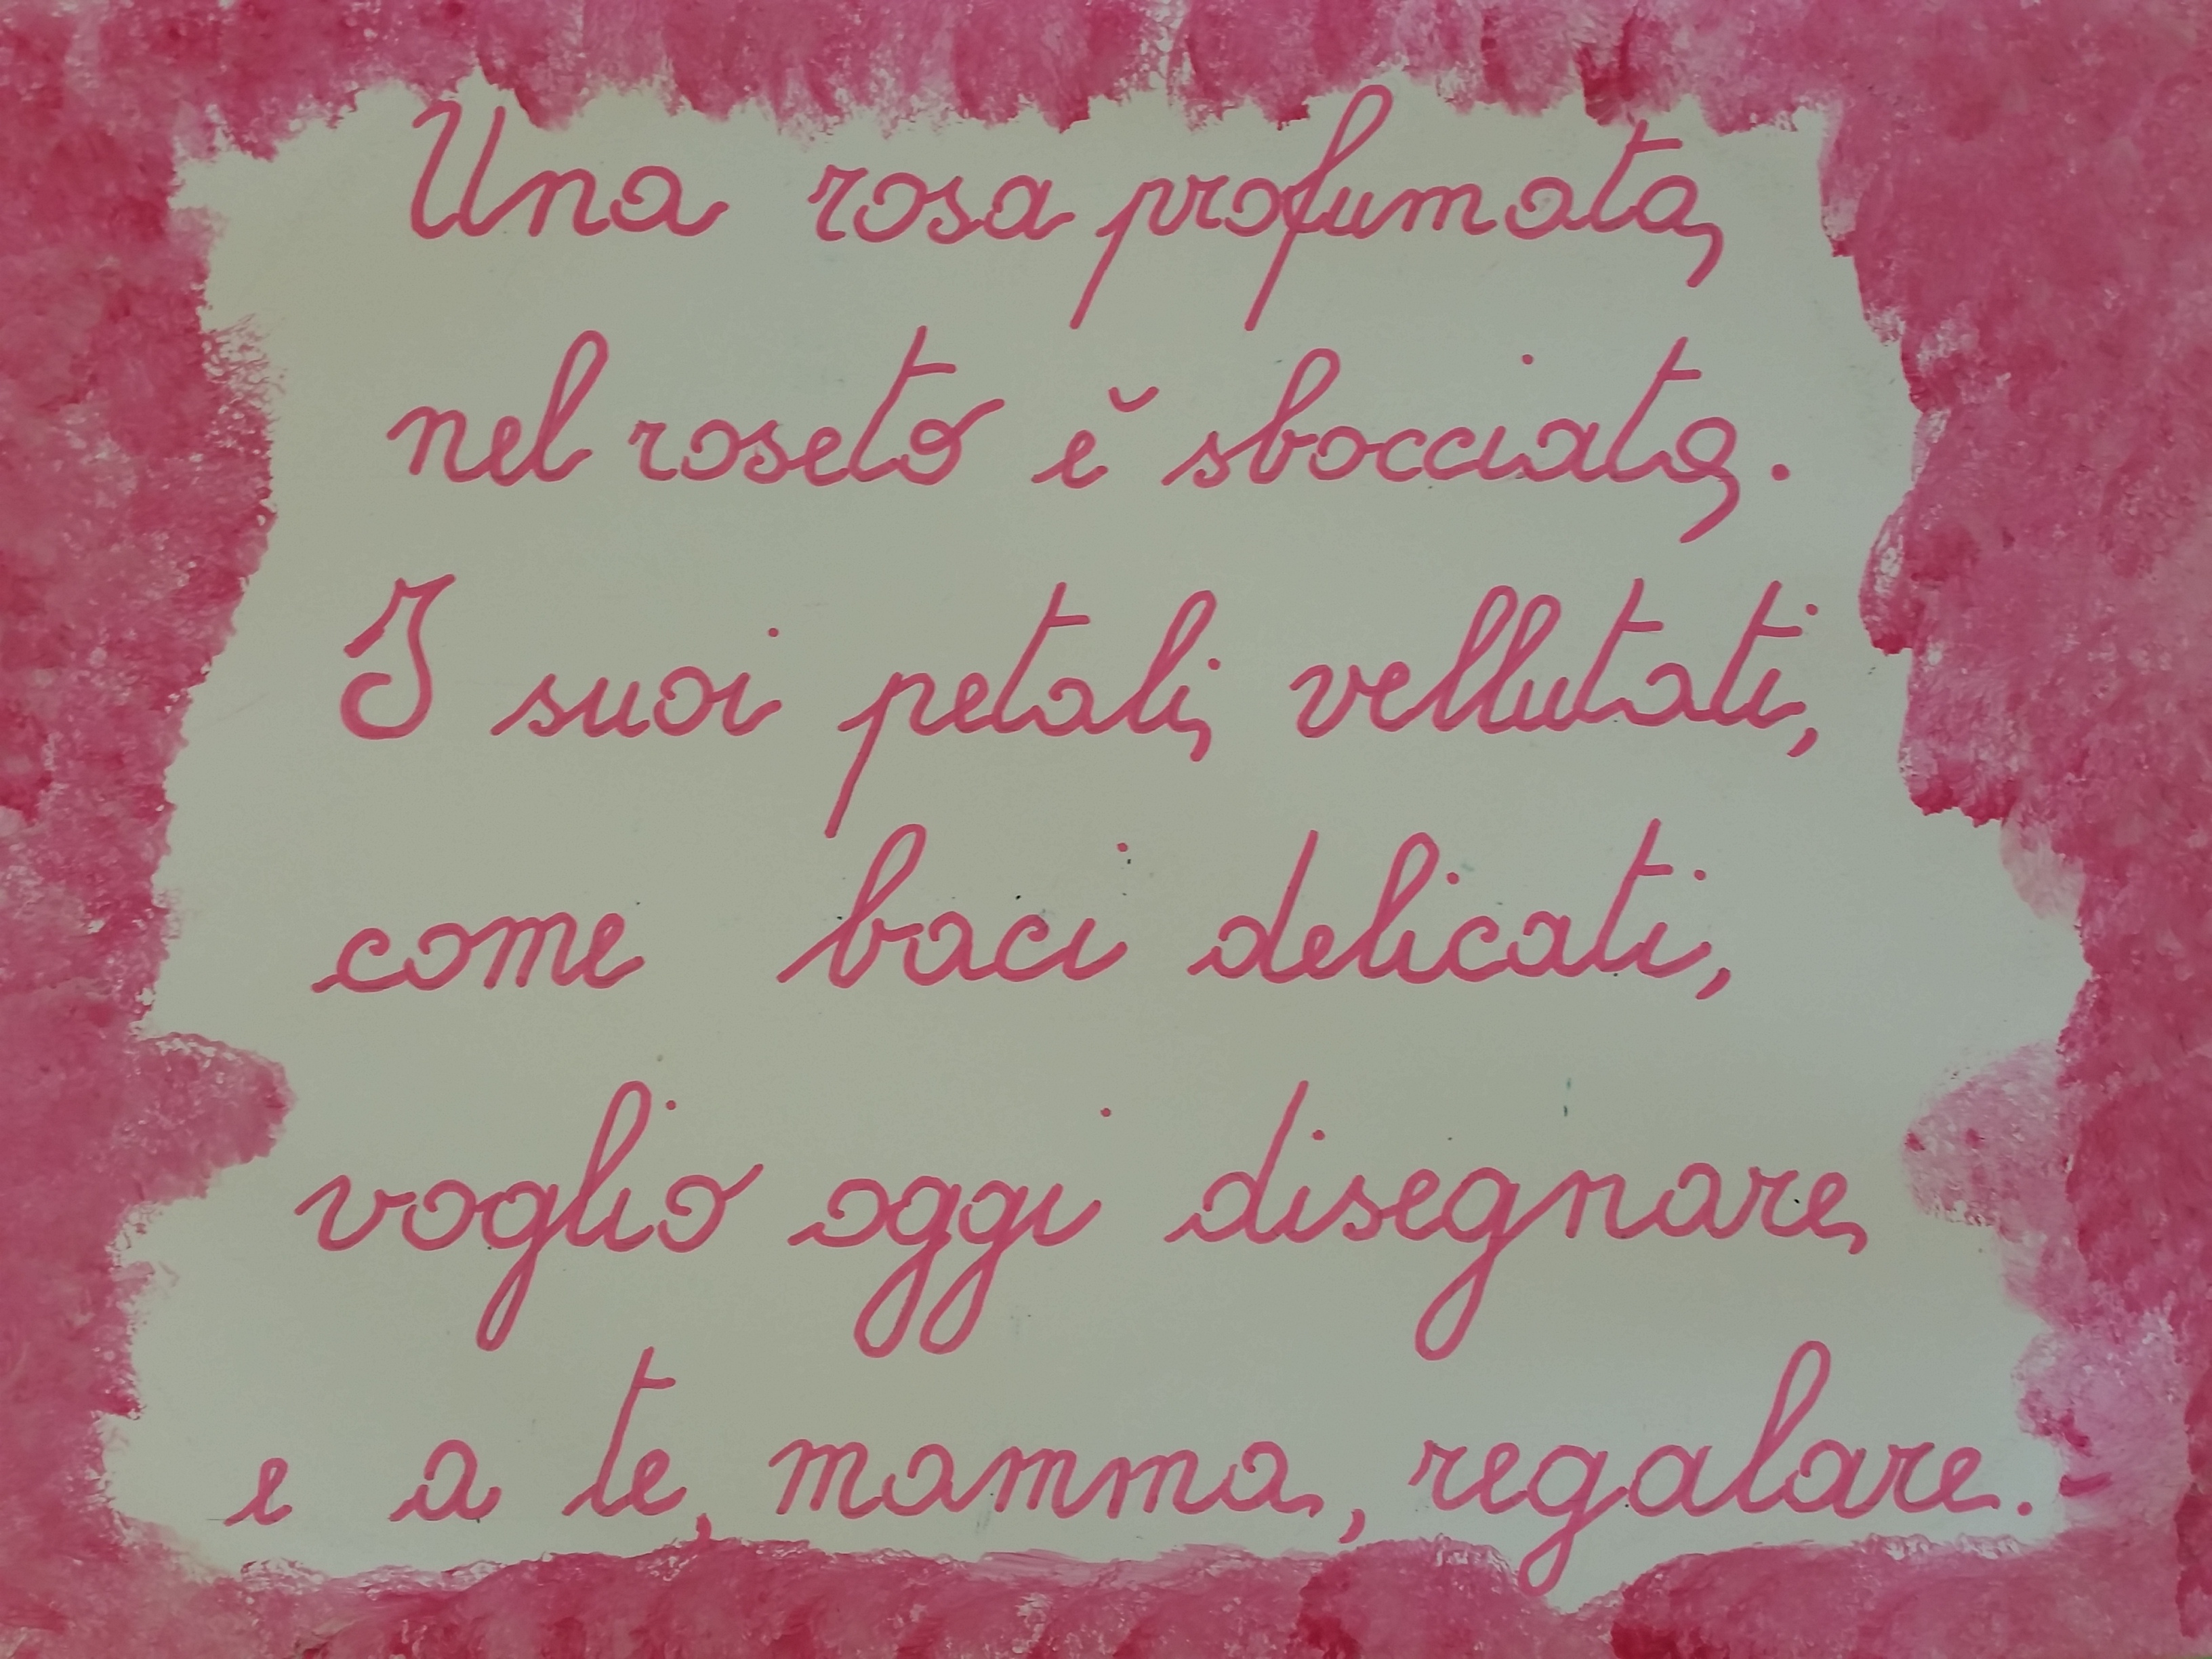 Una rosa profumata,
nel roseto ĕ sbocciata,.
I suoi petali, vellutati,
come baci delicati,
voglio oggi disegnare,
e a te, mamma, regalare.